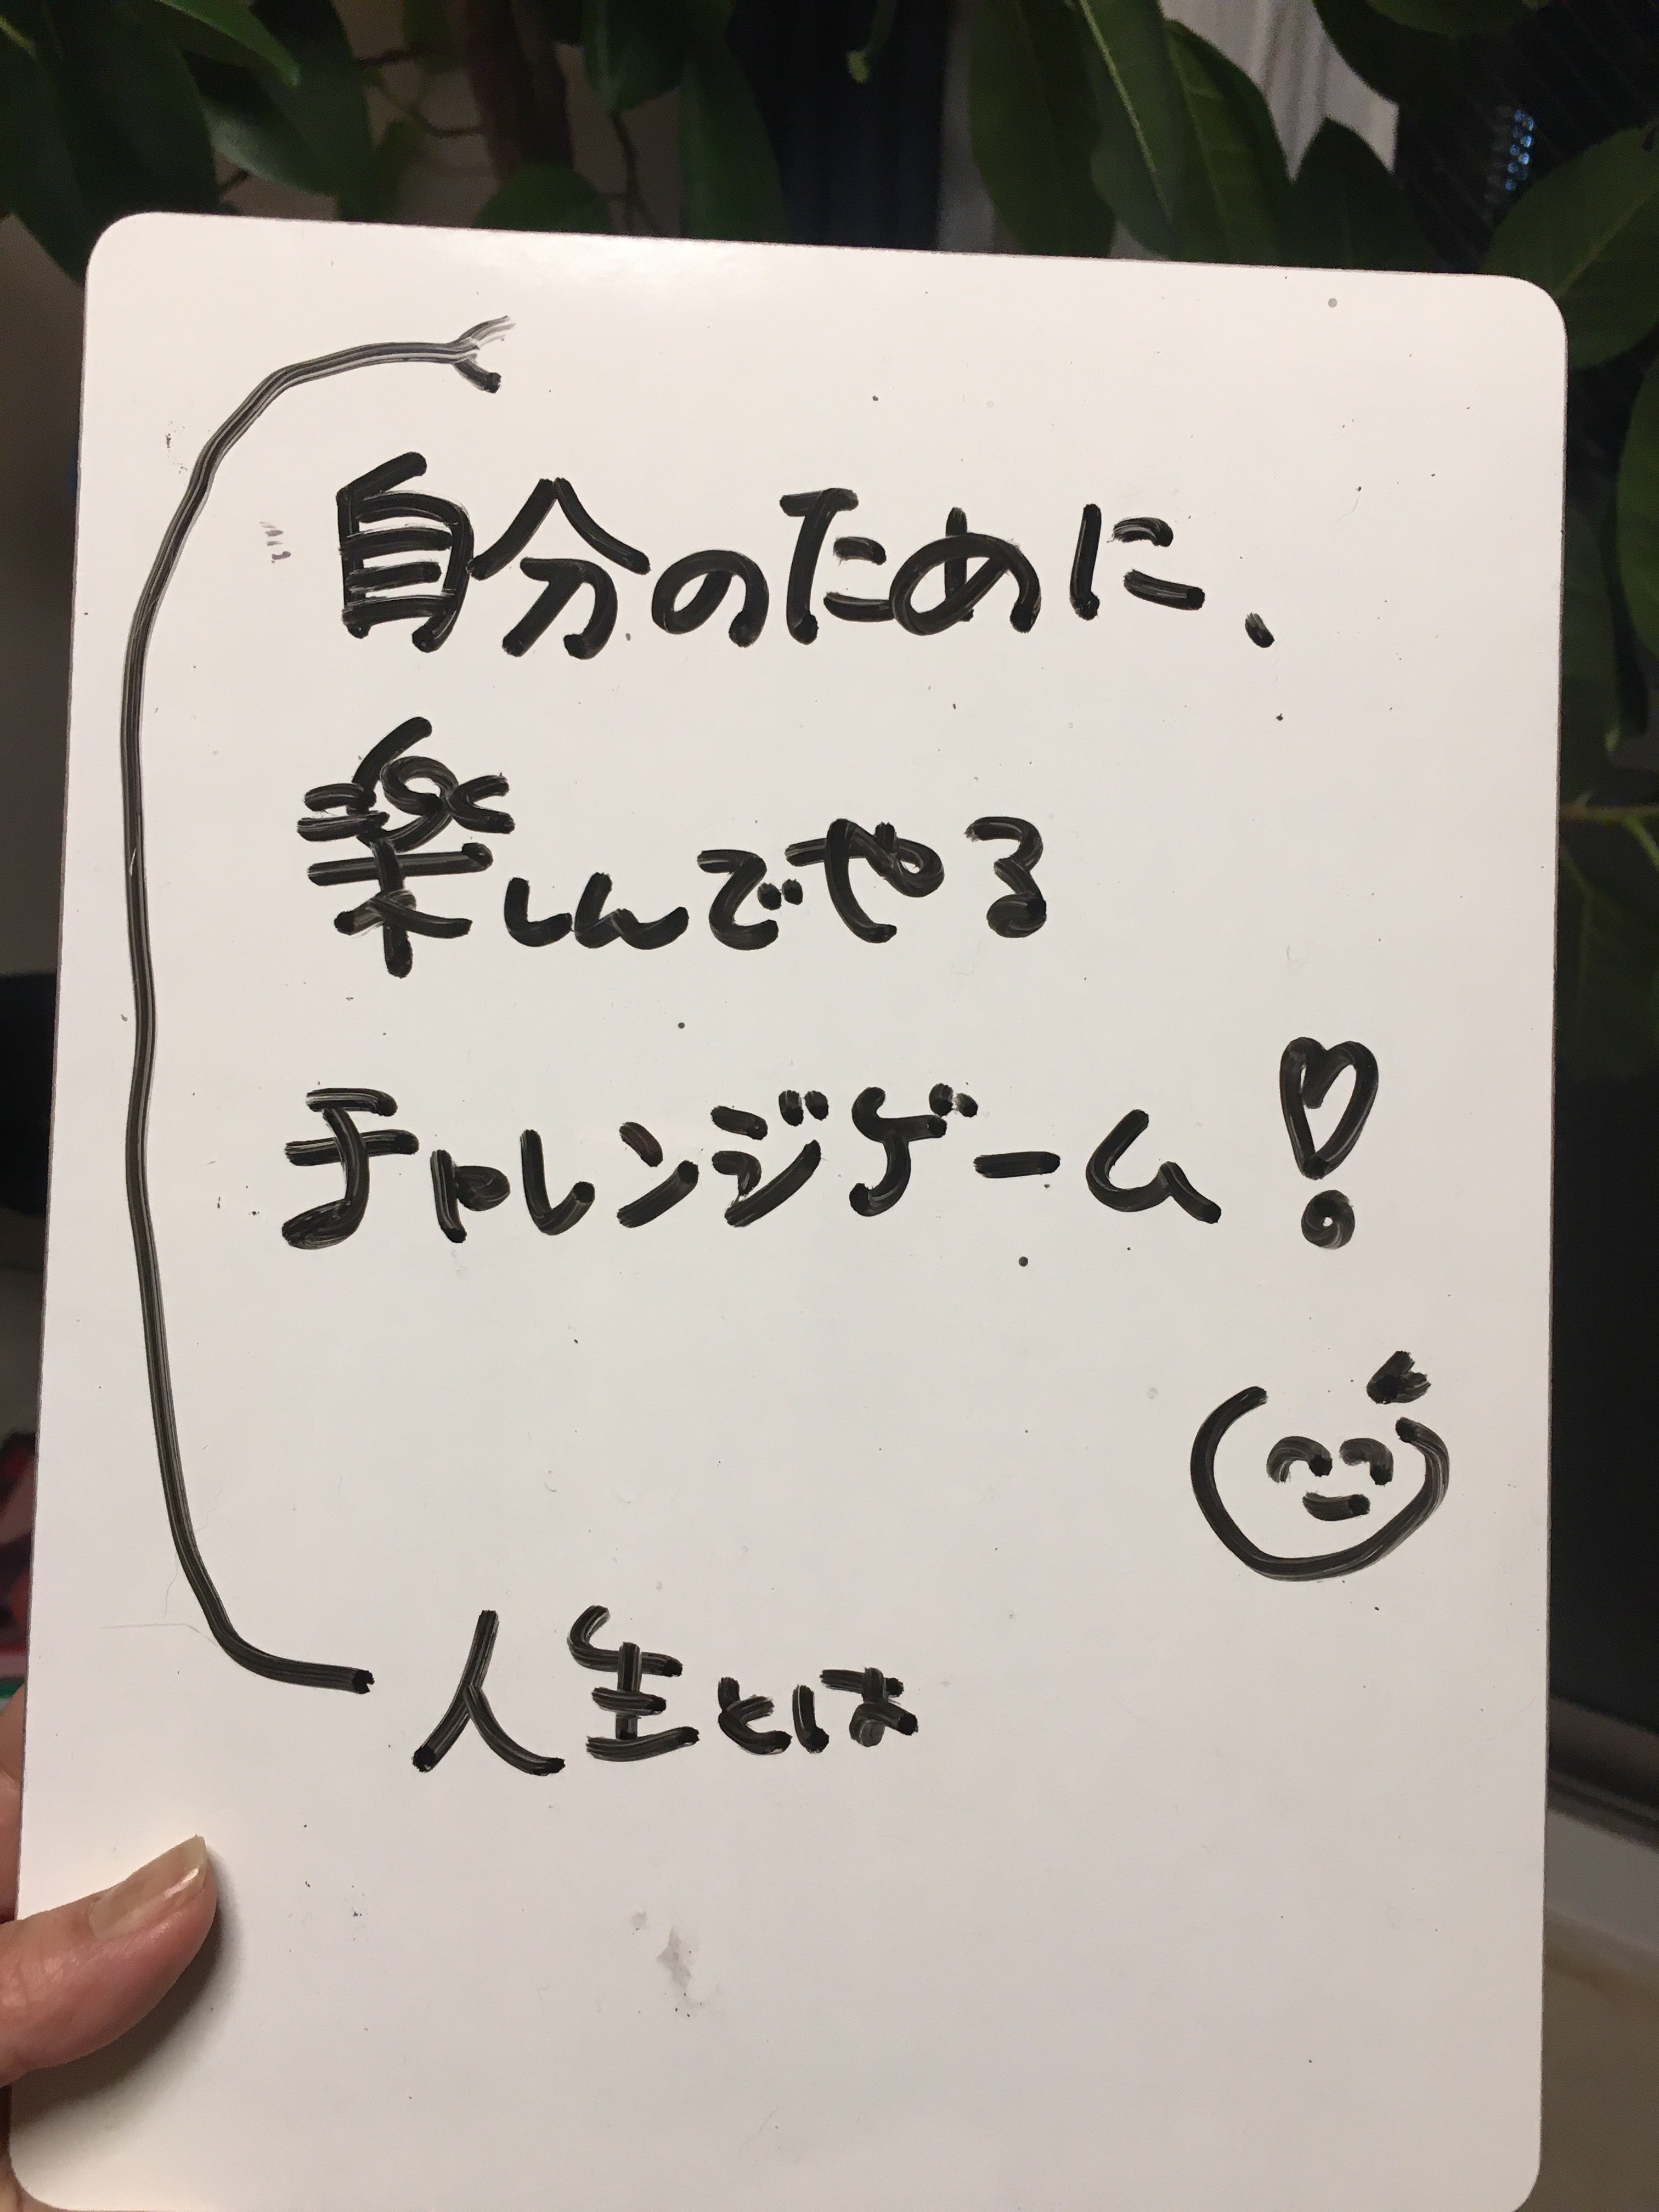 自分のために、
楽しんでやる
チャレンジゲーム!
人生とは